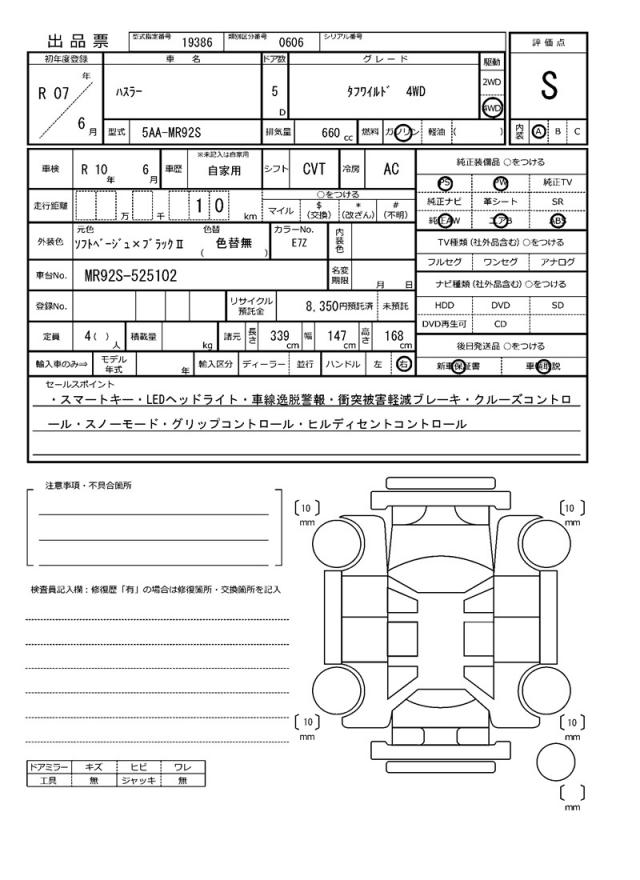 出品票 型式指定番号 19386 類別区分番号 0606 シリアル番号
評価点
初年度登録 車名 ドア数 グレード 駆動
R 07 年 6 月 ハスラー 5 D タフワイルド 4WD 2WD 4WD S
型式 5AA-MR92S 排気量 660 cc 燃料 ガソリン 軽油 ( ) 内装 A B C
車検 R 10 年 6 月 車歴 ※未記入は自家用 自家用 シフト CVT 冷房 AC
走行距離 万 千 1 0 km ○をつける マイル $ (交換) * (改ざん) # (不明)
外装色 元色 ソフトベージュ×ブラックⅡ 色替 色替無 ( ) カラーNo. E7Z 内装色
車台No. MR92S-525102 名変期限 月 日
登録No. リサイクル預託金 8,350円預託済 未預託
定員 4( ) 人 積載量 kg 諸元 長さ 339 cm 幅 147 cm 高さ 168 cm
輸入車のみ⇒ モデル年式 年 輸入区分 ディーラー 並行 ハンドル 左 右
純正装備品 ○をつける
PS PW 純正TV
純正ナビ 革シート SR
純正AW エアB ABS
TV種類(社外品含む)○をつける
フルセグ ワンセグ アナログ
ナビ種類(社外品含む)○をつける
HDD DVD SD
DVD再生可 CD
後日発送品 ○をつける
新車保証書 車輌取説
セールスポイント
・スマートキー・LEDヘッドライト・車線逸脱警報・衝突被害軽減ブレーキ・クルーズコントロ
ール・スノーモード・グリップコントロール・ヒルディセントコントロール
注意事項・不具合箇所
検査員記入欄：修復歴「有」の場合は修復箇所・交換箇所を記入
ドアミラー キズ ヒビ ワレ
工具 無 ジャッキ 無
〔10〕 mm
〔10〕 mm
〔10〕 mm
〔10〕 mm
〔 〕 mm